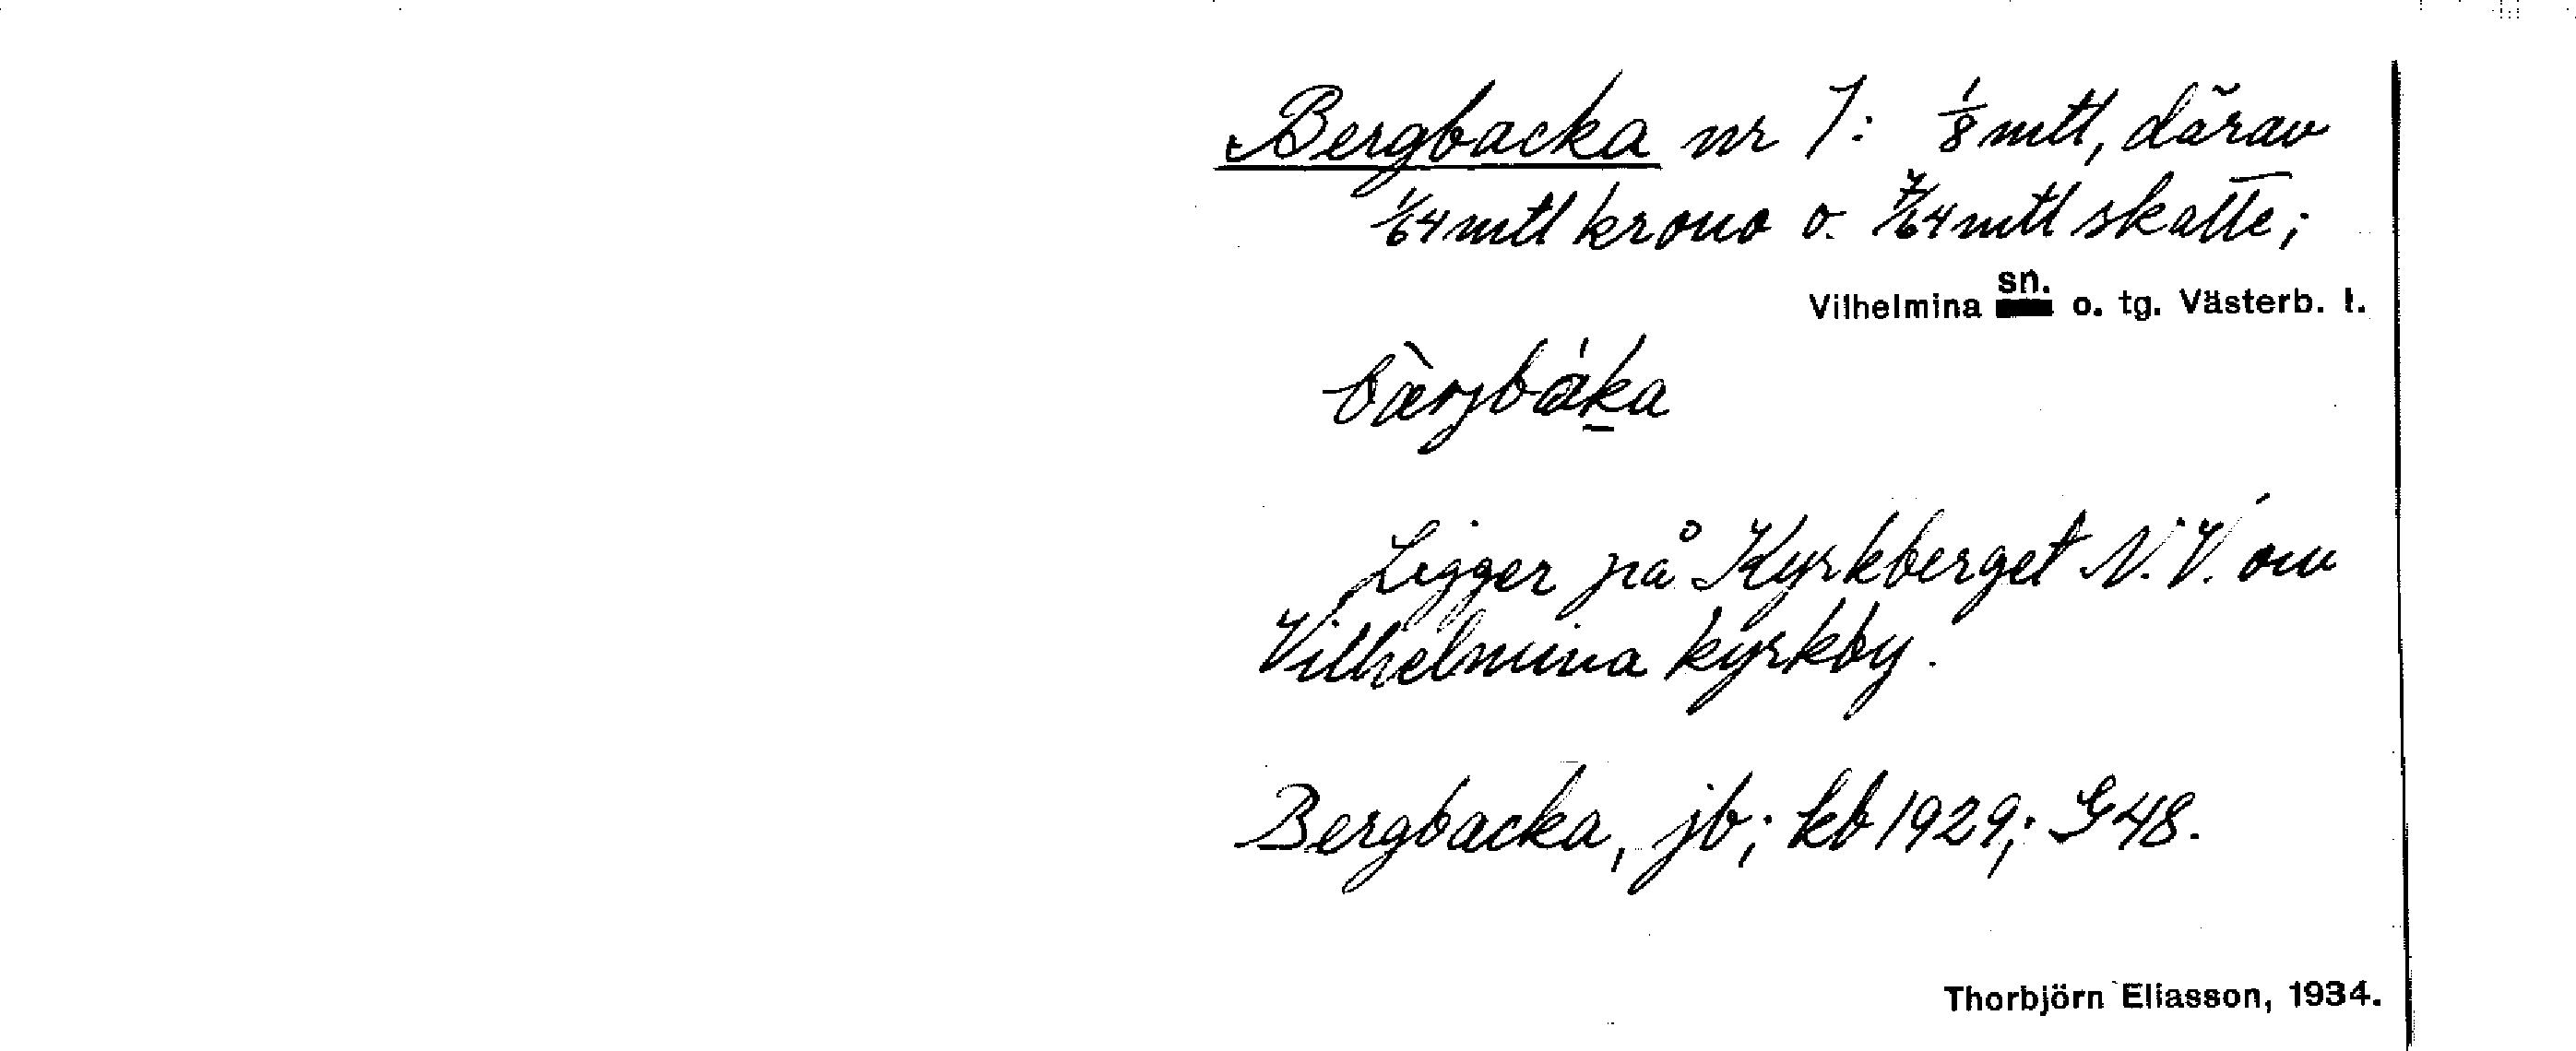 Bergbacka nr 1: 1/8 mtl, därav
1/64 mtl krono o. 7/64 mtl skatte;
Vilhelmina sn. o. tg. Västerb. l.
bær̀jbáka
Ligger på Kyrkberget N.V. om
Vilhelmina kyrkby.
Bergbacka, jb; kb 1929; G 48.
Thorbjörn Eliasson, 1934.